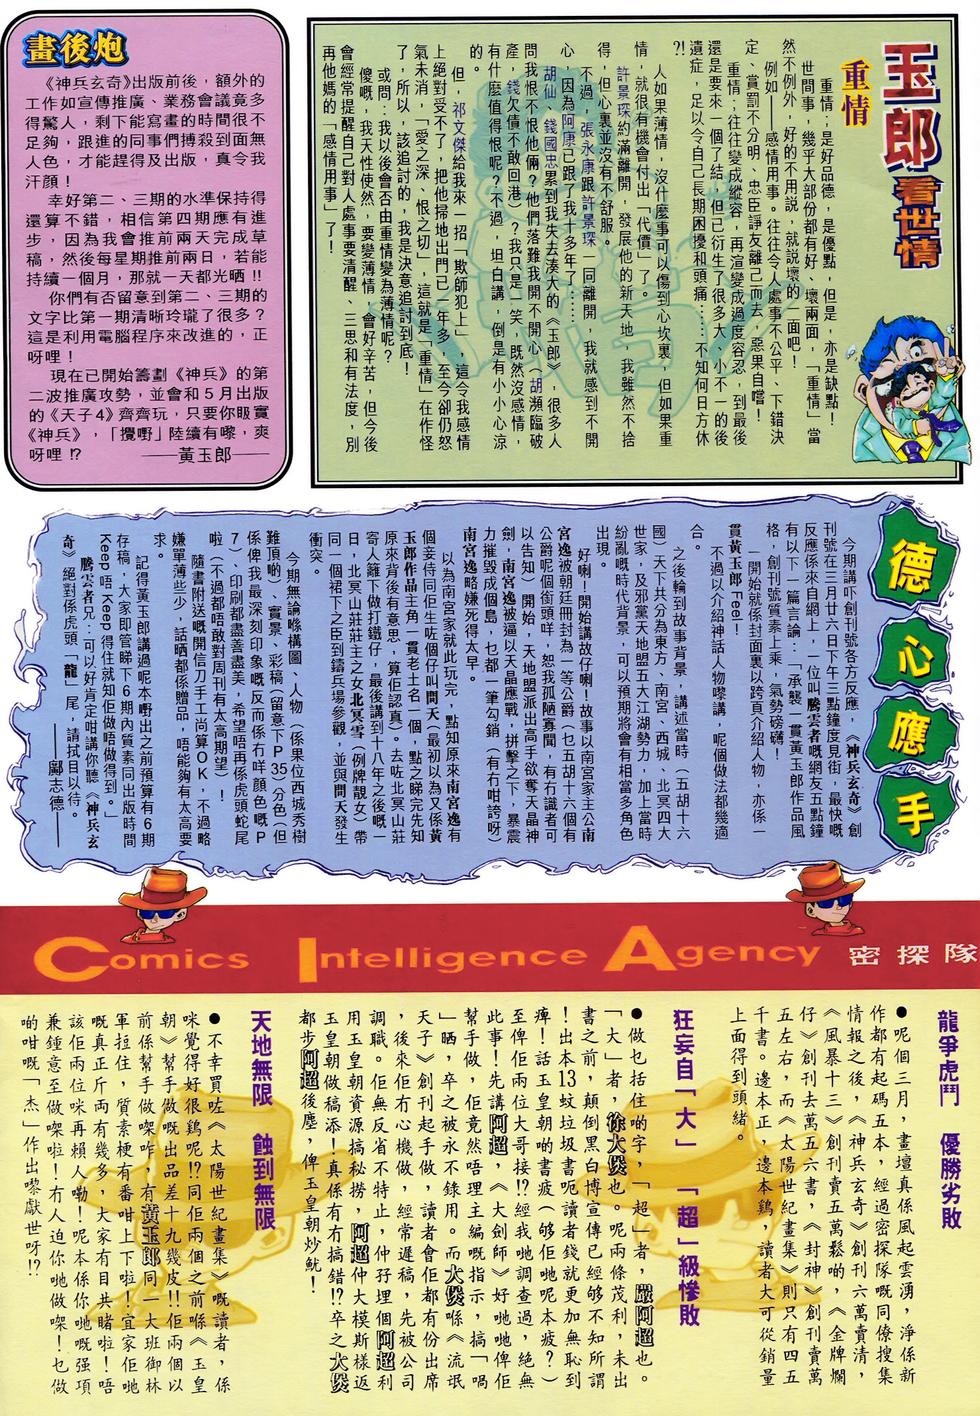 玉郎看世情
重情
重情；是好品德，是優點，但是，亦是缺點！
世間事，幾乎大部份都有好、壞兩面，「重情」當
然不例外，好的不用說，就說壞的一面吧！
例如——感情用事。往往令人處事不公平、下錯決
定、賞罰不分明、忠臣諍友離己而去，惡果自嚐！
重情；往往變成縱容，再渲變成過度容忍，到最後
還是要來一個了結，但已衍生了很多大、小不一的後
遺症，足以令自己長期困擾和頭痛……不知何日方休
?!
人如果薄情，沒什麼事可以傷到心坎裏，但如果重
情，就很有機會付出「代價」了。
許景琛約滿離開，發展他的新天地，我雖然不捨
得，但心裏並沒有不舒服。
不過，張永康跟許景琛一同離開，我就感到不開
心，因為阿康已跟了我十多年了……
胡仙、錢國忠累到我失去湊大的《玉郎》，很多人
問我恨不恨他倆？他們落難我開不開心（胡瀕臨破
產，錢欠債不敢回港）？我只是一笑，既然沒感情，
有什麼值得恨呢？不過，坦白講，倒是有小小心涼
的。
但，祁文傑給我來一招「欺師犯上」，這令我感情
上絕對受不了，把他掃地出門已一年多，至今卻仍怒
氣未消，「愛之深、恨之切」，這就是「重情」在作怪
了，所以，該追討的，我是決意追討到底！
或問：我以後會否由重情變為薄情呢？
傻嘅，我天性使然，要變薄情，會好辛苦，但今後
會經常提醒自己對人處事要清醒、三思和有法度，別
再他媽的「感情用事」了！
畫後炮
《神兵玄奇》出版前後，額外的
工作如宣傳推廣、業務會議竟多
得驚人，剩下能寫畫的時間很不
足夠，跟進的同事們搏殺到面無
人色，才能趕得及出版，真令我
汗顏！
幸好第二、三期的水準保持得
還算不錯，相信第四期應有進
步，因為我會推前兩天完成草
稿，然後每星期推前兩日，若能
持續一個月，那就一天都光晒!!
你們有否留意到第二、三期的
文字比第一期清晰玲瓏了很多？
這是利用電腦程序來改進的，正
呀哩！
現在已開始籌劃《神兵》的第
二波推廣攻勢，並會和5月出版
的《天子4》齊齊玩，只要你眼實
《神兵》，「攪嘢」陸續有嚟，爽
呀哩!?
——黃玉郎——
德心應手
今期講吓創刊號各方反應，《神兵玄奇》創
刊號在三月廿六日下午三點鐘度見街，最快嘅
反應係來自網上，一位叫騰雲者嘅網友五點鐘
有以下一篇言論：「承襲一貫黃玉郎作品風
格，創刊號質素上乘，氣勢磅礴！
一開始就係封面裏以跨頁介紹人物，亦係一
貫黃玉郎Feel！
不過以介紹神話人物嚟講，呢個做法都幾適
合。
之後輪到故事背景，講述當時（五胡十六
國）天下共分為東方、南宮、西城、北冥四大
世家，及邪黨天地盟五大江湖勢力，加上當時
紛亂嘅時代背景，可以預期將會有相當多角色
出現。
好喇！開始講故仔喇！故事以南宮家主公南
宮逸被朝廷冊封為一等公爵，乜五胡十六個有
公爵呢個銜頭咩，恕我孤陋寡聞，有冇識者可
以告知）開始，天地盟派出高手欲奪天晶神
劍，南宮逸被逼以天晶應戰，拼擊之下，暴震
力摧毀成個島，乜都一筆勾銷（有冇咁誇呀）
南宮逸略嫌死得太早。
以為南宮家就此玩完，點知原來南宮逸有
個妾侍同佢生咗個仔叫問天（最初以為又係黃
玉郎作品主角一貫老土名一個，點之睇完先知
原來背後有意思，算佢認真）。去咗北冥山莊
寄人籬下做打鐵仔，最後講到十八年之後嘅一
日，北冥山莊莊主之女北冥雪（例牌靚女）帶
同一個裙下之臣到鑄兵場參觀，並與問天發生
衝突。
今期無論喺構圖、人物（係果位西城秀樹
難頂啲）、實景、彩稿（留意下P35）分色（但
係俾我最深刻印象嘅反而係冇咩顏色嘅P
7）、印刷都盡善盡美，希望唔再係虎頭蛇尾
啦（不過都唔敢對周刊有太高期望）！
隨書附送嘅開信刀手工尚算OK，不過略
嫌單薄些少，話晒都係贈品，唔能夠有太高要
求。
記得黃玉郎講過呢本嘢出之前預算有6期
存稿，大家即管睇下6期內質素同出版時間
Keep唔Keep得住就知佢做唔做得到。」
騰雲者兄：可以好肯定咁講你聽《神兵玄
奇》絕對係虎頭「龍」尾，請拭目以待。
——鄺志德——
Comics Intelligence Agency 密探隊
龍爭虎鬥　優勝劣敗
●呢個三月，畫壇真係風起雲湧，淨係新
作都有起碼五本，經過密探隊嘅同僚搜集
情報之後，《神兵玄奇》創刊六萬賣清，
《風暴十三》創刊賣五萬鬆啲，《金牌爛
仔》創刊去萬五六書，《封神》創刊賣萬
五左右，而《太陽世紀畫集》則只有四五
千書。邊本正，邊本鷄，讀者大可從銷量
上面得到頭緒。
狂妄自「大」　「超」級慘敗
●做乜括住啲字，「超」者，嚴阿超也。
「大」者，徐大俊也。呢兩條茂利，未出
書之前，顛倒黑白博宣傳已經夠不知所謂
！出本13蚊垃圾書呃讀者錢就更加無恥到
痺！話玉皇朝啲書疲（夠佢哋呢本疲？）
至俾佢兩位大哥接!?經我哋調查過，絕無
此事！先講阿超，《大劍師》好哋哋俾佢
幫手做，佢竟然唔理主編嘅指示，搞「喎
」晒，卒之被永不錄用。而大俊喺《流氓
天子》創刊起手做，讀者會佢都有份出席
，後來佢冇心機做，經常遲稿，先被公司
調職。佢無反省不特止，仲孖埋個阿超利
用玉皇朝資源搞秘撈，阿超仲大模斯樣返
玉皇朝做稿添！真係有冇搞錯!?卒之大俊
都步阿超後塵，俾玉皇朝炒魷！
天地無限　蝕到無限
●不幸買咗《太陽世紀畫集》嘅讀者，係
咪覺得好很鷄呢!?同佢兩個之前喺《玉皇
朝》幫手做嘅出品差十九幾皮!!佢兩個以
前係幫手做㗎咋，有黃玉郎同一大班御林
軍拉住，質素梗有番咁上下啦！宜家佢哋
嘅真正斤兩有幾多，大家有目共睹啦！唔
該佢兩位咪再賴人嘞！呢本係你哋嘅强項
兼鍾意至做㗎啦！冇人迫你哋做㗎！乜做
啲咁嘅「杰」作出嚟獻世呀!?